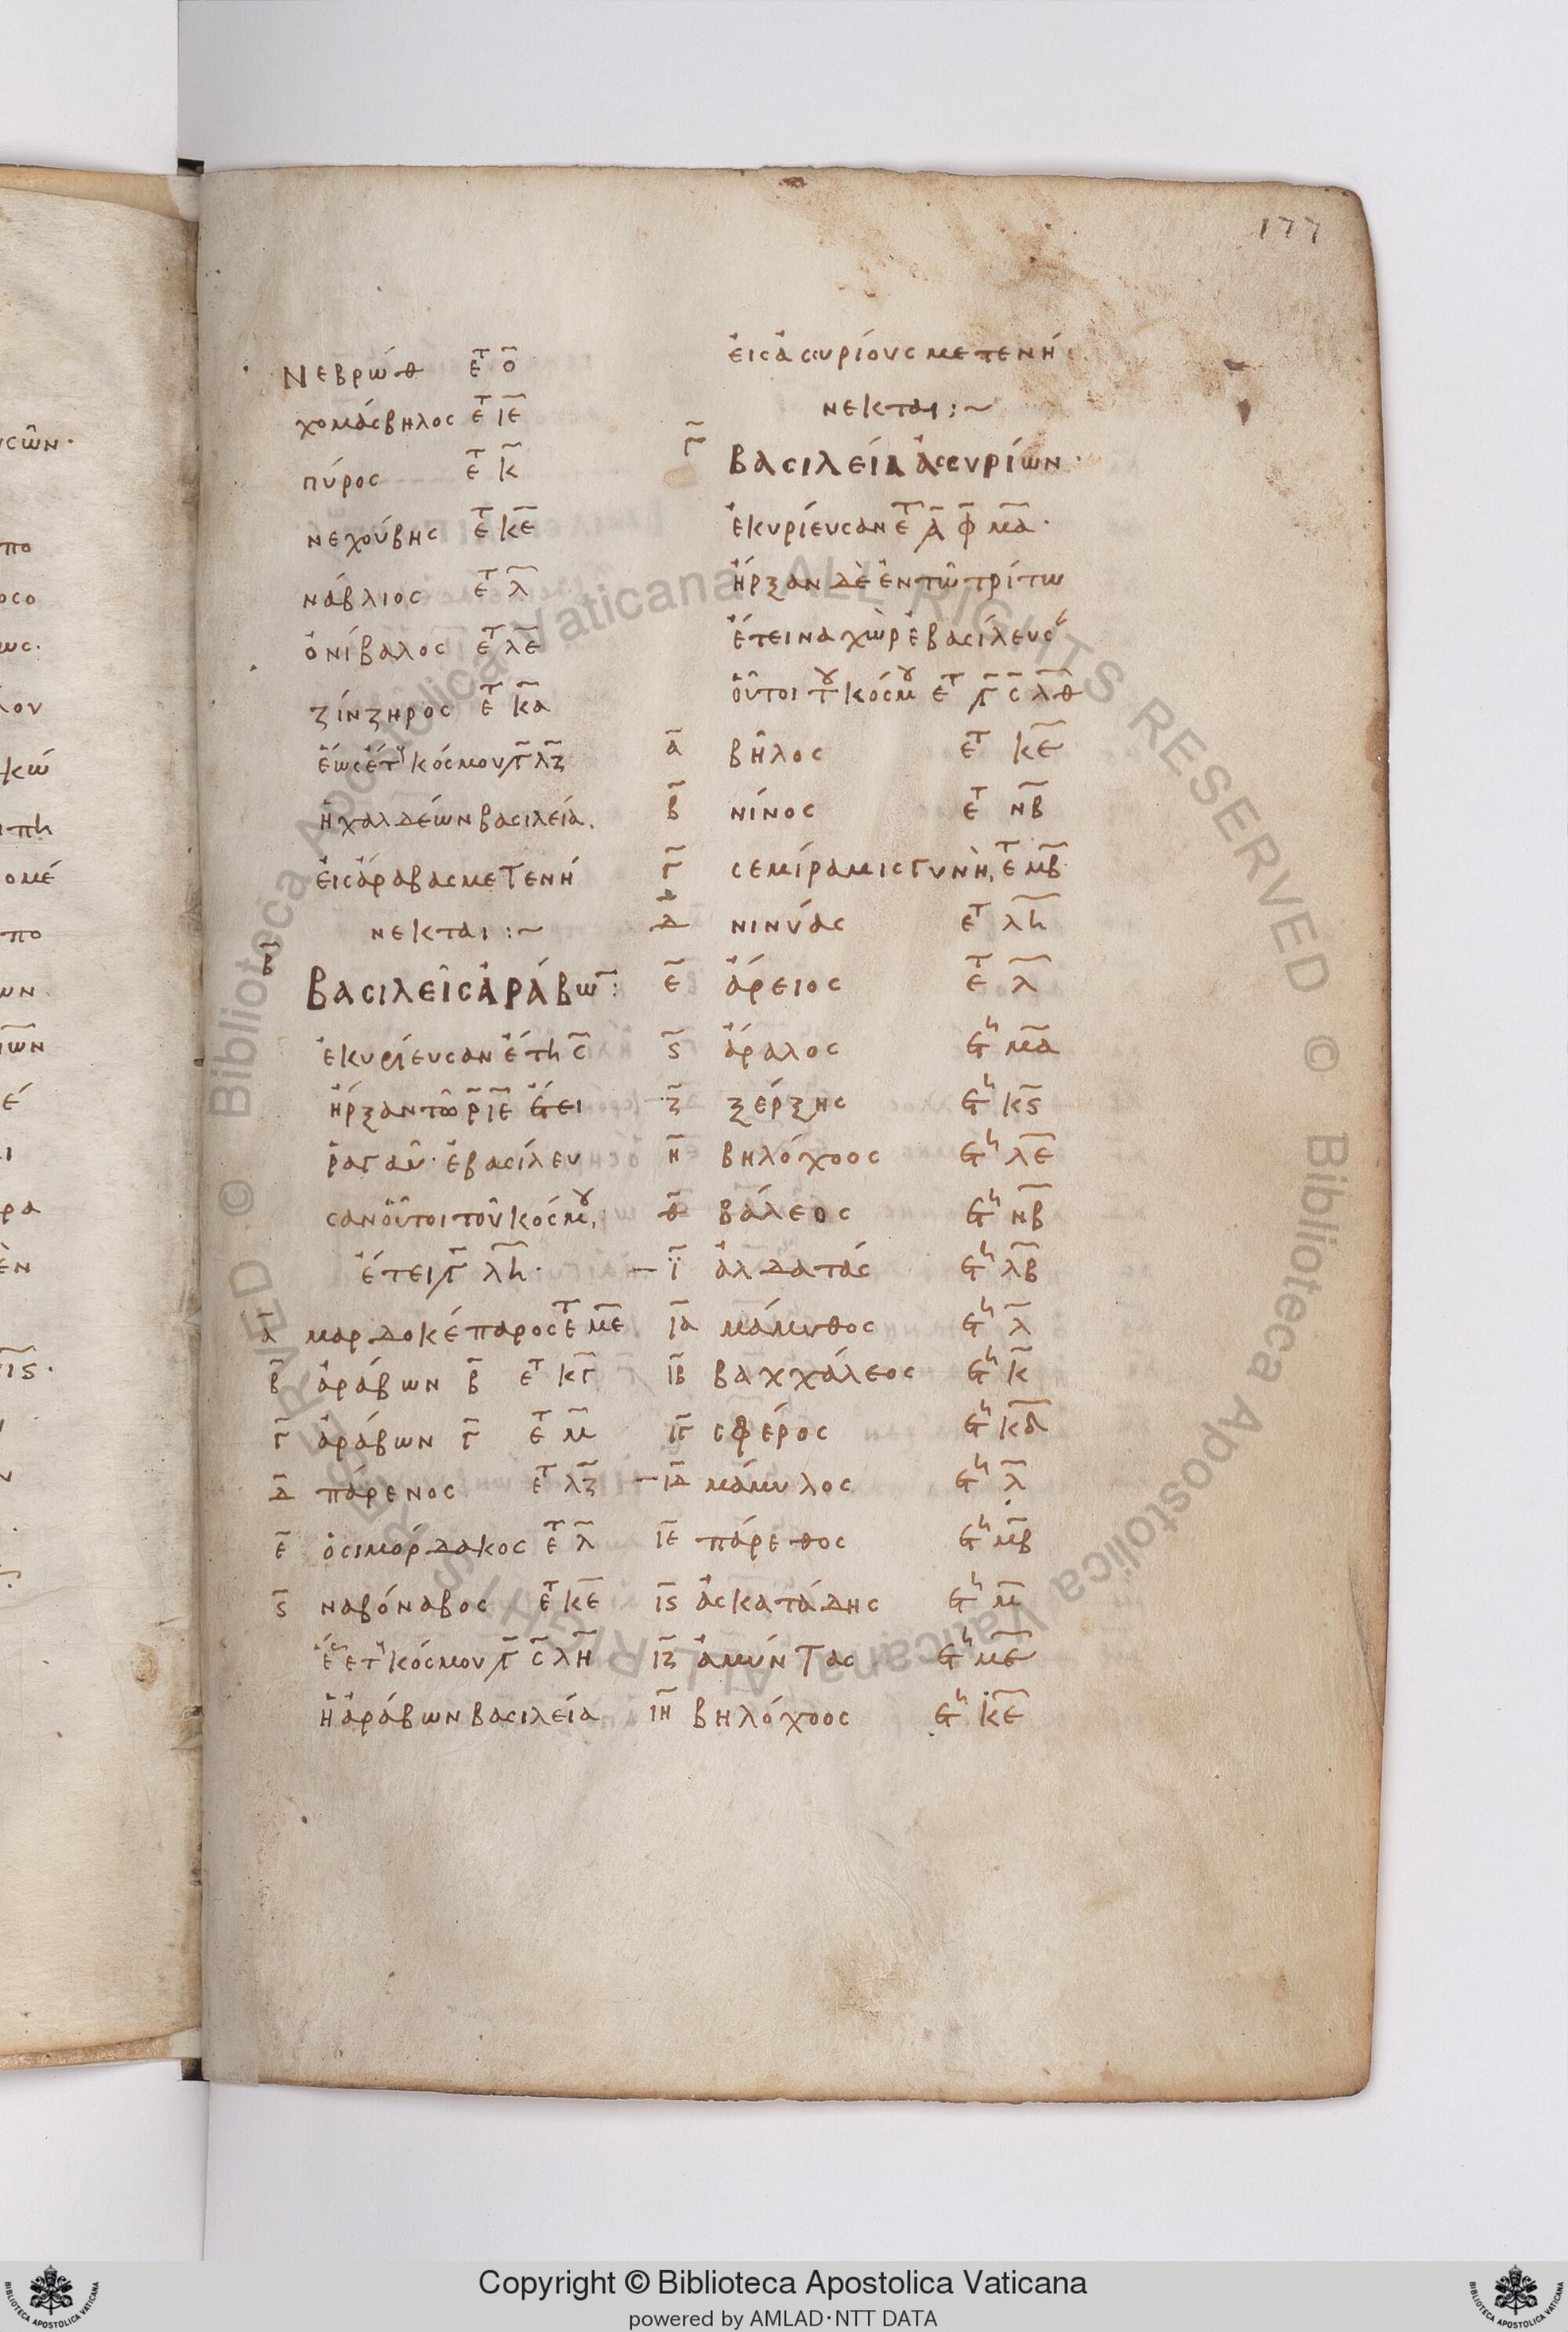 177
Νεβρώθ ε̅τ ο̅
χομάσβηλος ε̅τ ιε̅
πύρος ε̅τ κ̅
νεχούβης ε̅τ κε̅
νάβλιος ε̅τ λ̅
ὀνίβαλος ε̅τ λε̅
ζίνζηρος ε̅τ κα̅
ἕως ἔτ κόσμου ͵γ̅ λζ̅
ἡ χαλδέων βασιλεία.
εἰς ἄραβας μετενή
νεκται :~
β̅ βασιλεῖς ἀράβω̅ :
ἐκυρίευσαν ἔτη σ̅
ἦρξαν τῶ ρ̅ιε̅ ἔτει
ῥαγαῦ· ἐβασίλευ
σαν οὗτοι τοῦ κόσμου,
ἔτει ͵γ̅ λη̅·
α̅ μαρδοκέπαρος ε̅τ με̅
β̅ ἀράβων β̅ ε̅τ κγ̅
γ̅ ἀράβων γ̅ ε̅τ μ̅
δ̅ πάρενος ε̅τ λζ̅
ε̅ ὀσιμόρδακος ε̅τ λ̅
ϛ̅ ναβόναβος ε̅τ κε̅
ἕς ετ κόσμου ͵γ̅ σ̅ λη̅
ἡ ἀράβων βασιλεία
εἰς ἀσσυρίους μετενή
νεκται :~
γ̅ βασιλεία ἀσσυρίων·
ἐκυρίευσαν ε̅τ ͵α̅ φ̅ μα̅·
ἦρξαν δὲ ἐν τῶ τρίτω
ἔτει ναχὼρ ἐβασίλευσ
οὗτοι του κόσμου ετ ͵γ̅ σ̅ λθ̅
α̅ βῆλος ετ κε̅
β̅ νίνος ετ νβ̅
γ̅ σεμίραμις γυνὴ, ετ μβ̅
δ̅ νινύας ετ λη̅
ε̅ ἄρειος ετ λ̅
ϛ̅ ἄραλος ετη μα̅
ζ̅ ξέρξης ετη κϛ̅
η̅ βηλόχοος ετη λε̅
θ̅ βάλεος ετη νβ̅
ι̅ ἀλδατάς ετη λβ̅
ια̅ μάμυθος ετη λ̅
ιβ̅ βαχχάλεος ετη κ̅
ιγ̅ σφέρος ετη κδ̅
ιδ̅ μάμυλος ετη λ̅
ιε̅ πάρεθος ετη μβ̅
ιϛ̅ ἀσκατάδης ετη μ̅
ιζ̅ ἀμύντας ετη με̅
ιη̅ βηλόχοος ετη κε̅
Copyright © Biblioteca Apostolica Vaticana
powered by AMLAD·NTT DATA